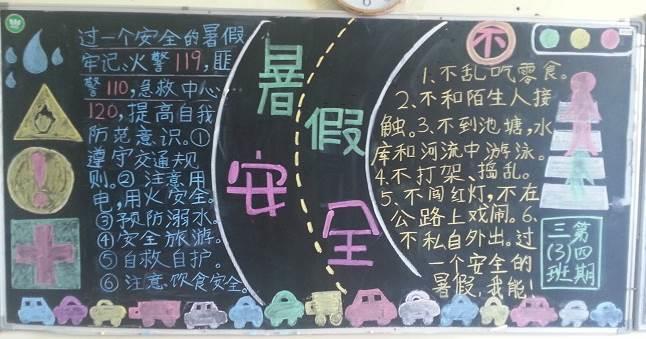 过一个安全的暑假
牢记、火警119,匪
警110,急救中心
120,提高自我
防范意识。①
遵守交通规
则。②注意用
电,用火安全。
③预防溺水。
④安全旅游。
⑤自救自护。
⑥注意饮食安全。
暑假
安全
不
1、不乱吃零食。
2、不和陌生人接
触。3、不到池塘,水
库和河流中游泳。
4、不打架、捣乱。
5、不闯红灯,不在
公路上戏闹。6、
不私自外出。过
一个安全的
暑假,我能!
第四期
三(3)班